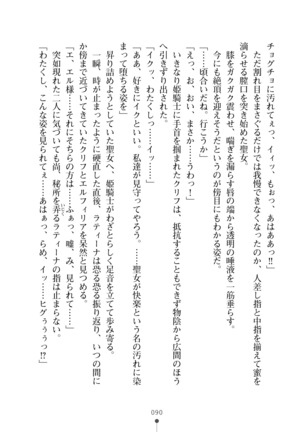 チョグチョに汚れてっ、イィッ、もぉっ、あはああっ!!」
ただ割れ目をまさぐるだけでは我慢できなくなったのか、人差し指と中指を揃えて蜜を
滴らせる膣口を突き始めた聖女。
膝をガクガク震わせ、喘ぎを漏らす唇の端から透明の唾液を一筋垂らす。
すぐにでも絶頂を迎えそうだというのが傍目にもわかる姿だ。
「……頃合いだね。行こうか」
「えっ、おおい、まさか……うわっ!」
いきなり姫騎士に手首を掴まれたクリフは、抵抗することもできず物陰から広間のほう
へ引きずり出された。
「イクッ、わたくしっ……イッ……」
「……ああ、好きにイクといい。私達が見守ってやろう。……聖女が快楽という名の汚れに染
まって堕ちる姿を」
昇り詰めようとする聖女へ、姫騎士がわざとらしく足音を立てて歩み寄る。
一瞬、時が止まったように硬直した直後、ラティーナは恐る恐る振り返り、いつの間に
か傍まで近づいてきていたクリフとエルフィリアを呆然と見つめた。
「エ、エル様……それにそちらの方は……ふぁっ、嘘、み、見られて……」
突如現れた二人に気づいても尚、秘所を弄るラティーナの指は止まらない。
「わたくし、こんな姿を見られてぇ……あはぁっ、らめ、イッ……ヒグぅぅぅっ!?」
090